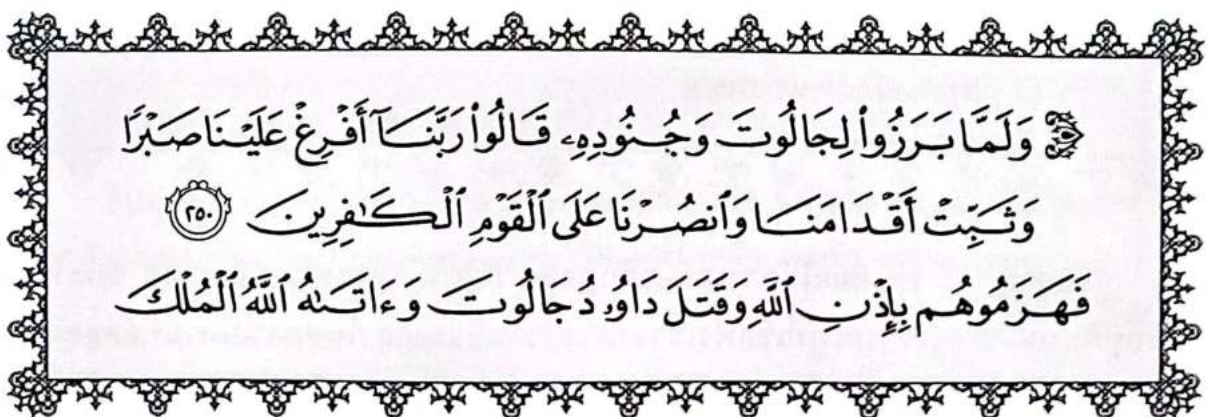 ۞ وَلَمَّا بَرَزُوا۟ لِجَالُوتَ وَجُنُودِهِۦ قَالُوا۟ رَبَّنَآ أَفْرِغْ عَلَيْنَا صَبْرًا
وَثَبِّتْ أَقْدَامَنَا وَٱنصُرْنَا عَلَى ٱلْقَوْمِ ٱلْكَـٰفِرِينَ ٢٥٠
فَهَزَمُوهُم بِإِذْنِ ٱللَّهِ وَقَتَلَ دَاوُۥدُ جَالُوتَ وَءَاتَىٰهُ ٱللَّهُ ٱلْمُلْكَ